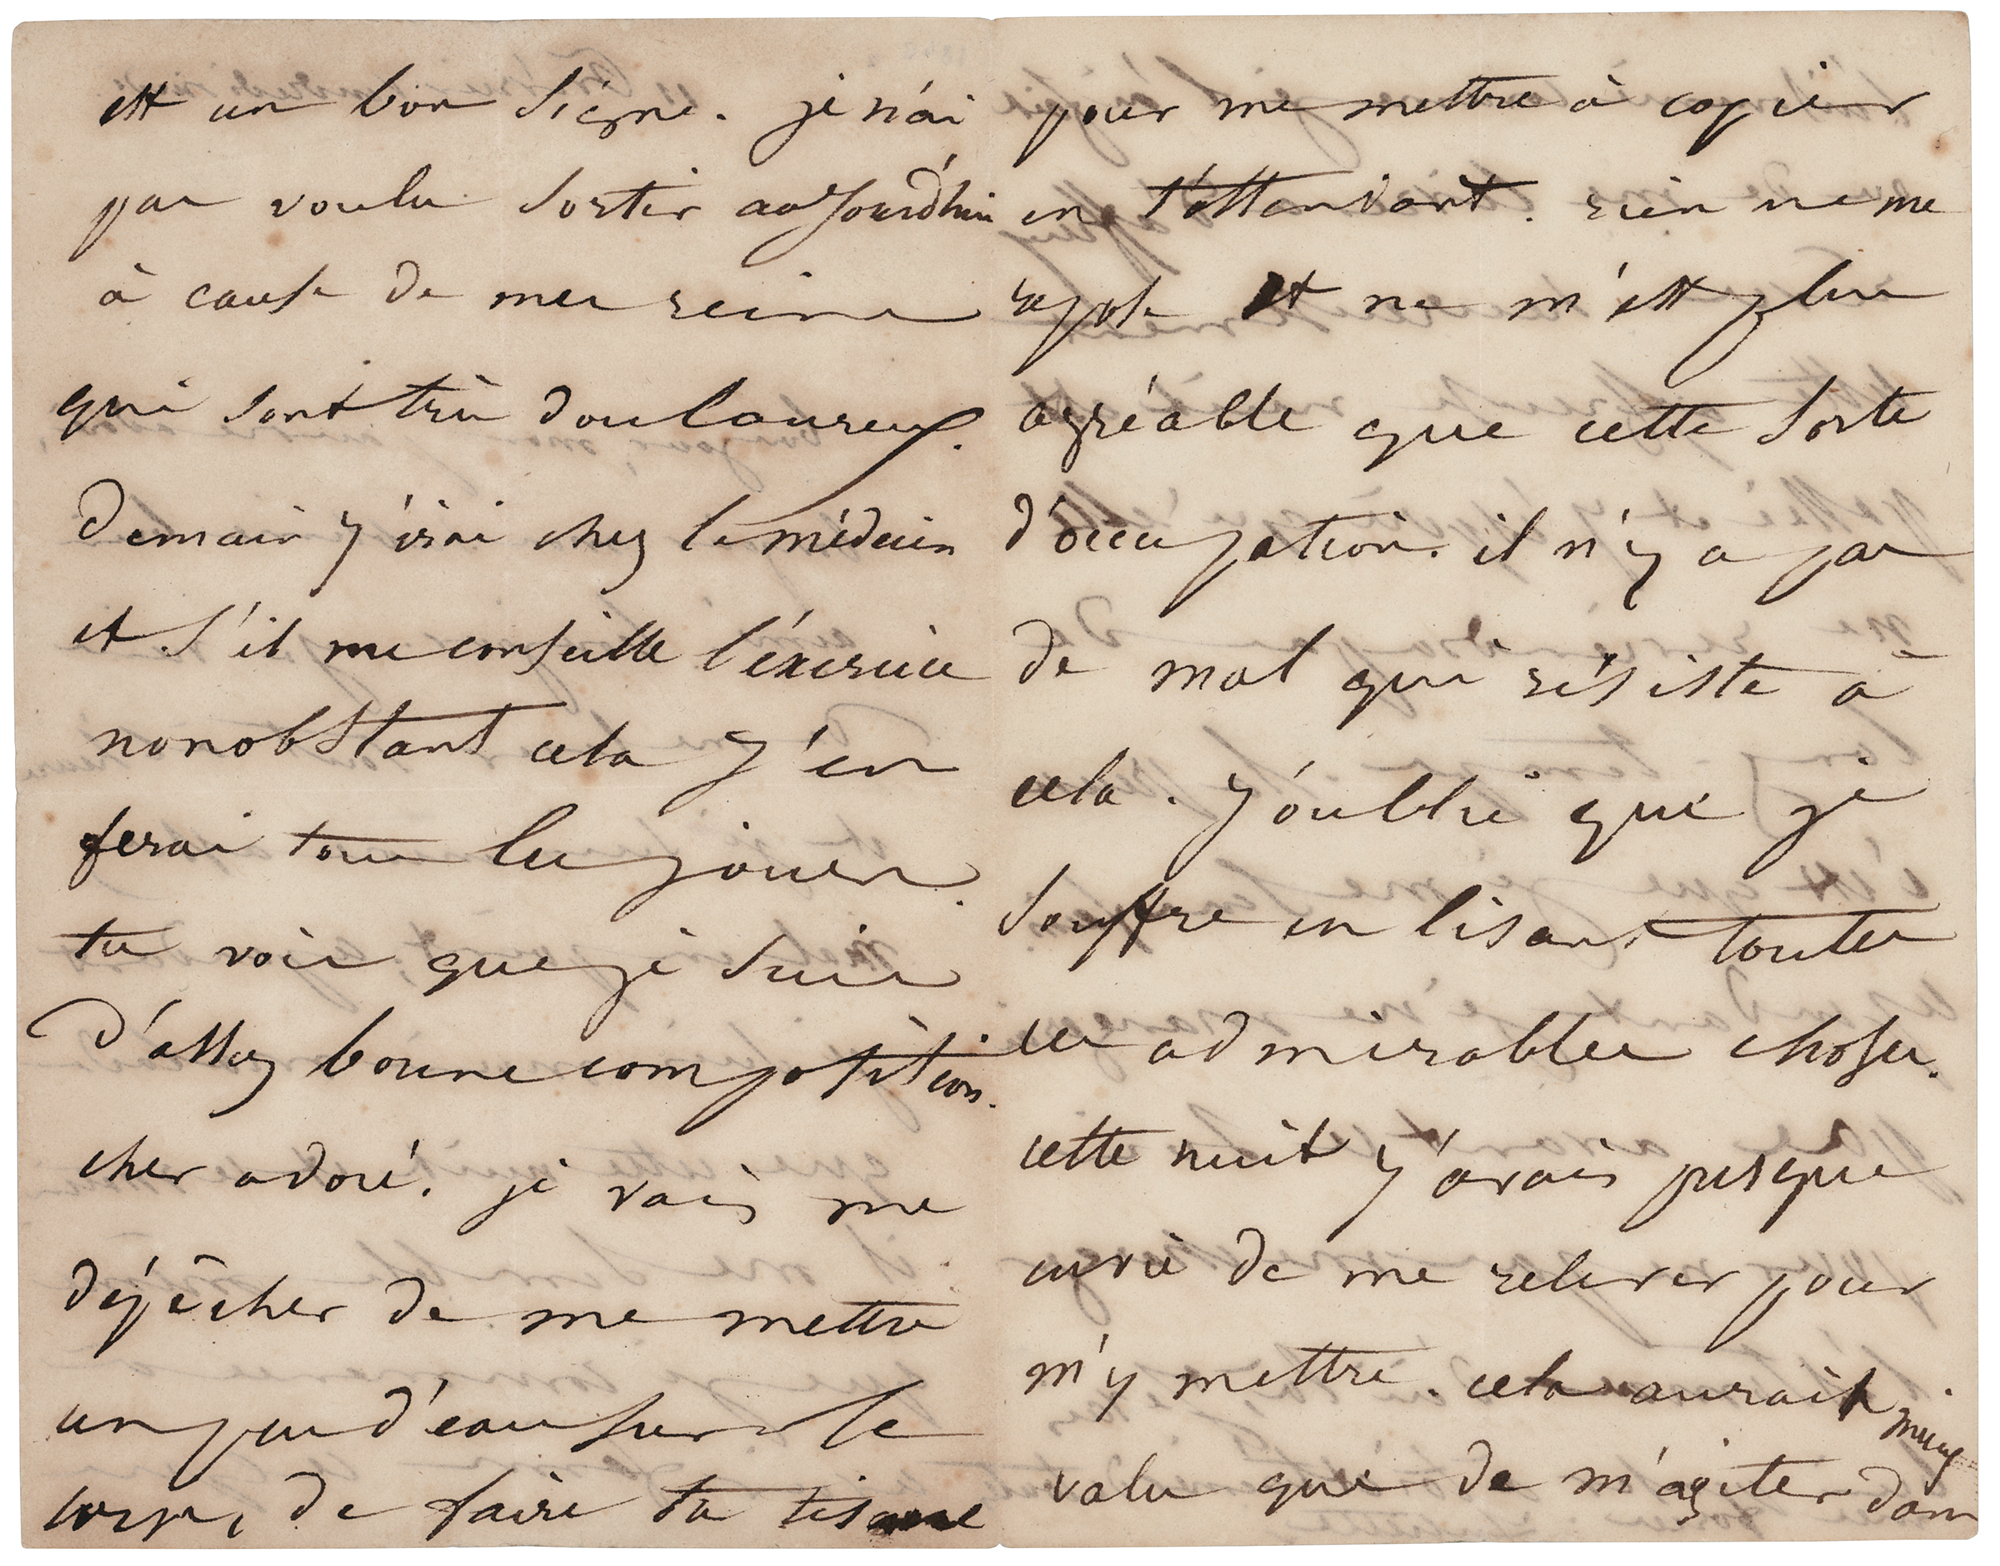 est un bon signe. je n'ai
pas voulu sortir aujourd'hui
à cause de mes reins
qui sont très douloureux.
Demain j'irai chez le médecin
et s'il me conseille l'exercice
nonobstant cela j'en
ferai tous les jours.
tu vois que je suis
d'assez bonne composition.
cher adoré. je vais me
dépêcher de me mettre
un peu d'eau sur le
corps, de faire ta tisane
pour me mettre à copier
en t'attendant. rien ne me
repose et ne m'est plus
agréable que cette sorte
d'occupation. il n'y a pas
de mal qui résiste à
cela. j'oublie que je
souffre en lisant toutes
ces admirables choses.
cette nuit j'avais presque
envie de me relever pour
m'y mettre. cela aurait mieux
valu que de m'agiter dans